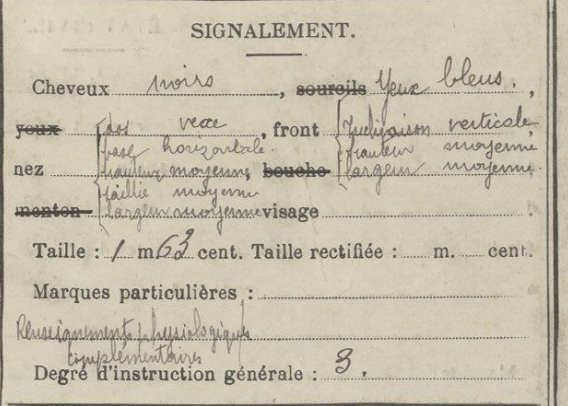 SIGNALEMENT.
Cheveux noirs, sourcils Yeux bleus,
yeux dos vexe, front Inclinaison verticale
base horizontale hauteur moyenne
nez hauteur moyenne, bouche largeur moyenne
saillie moyenne
menton largeur moyenne visage
Taille : 1 m 63 cent. Taille rectifiée : m. cent.
Marques particulières :
Renseignements physiologiques
complémentaires
Degré d'instruction générale : 3.